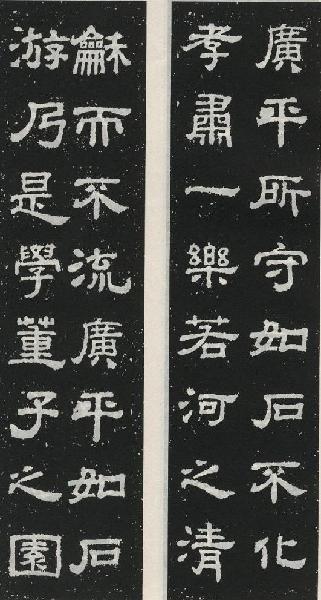 廣平所守如石不化
孝肅一樂若河之清
龢而不流廣平如石
游乃是學董子之園